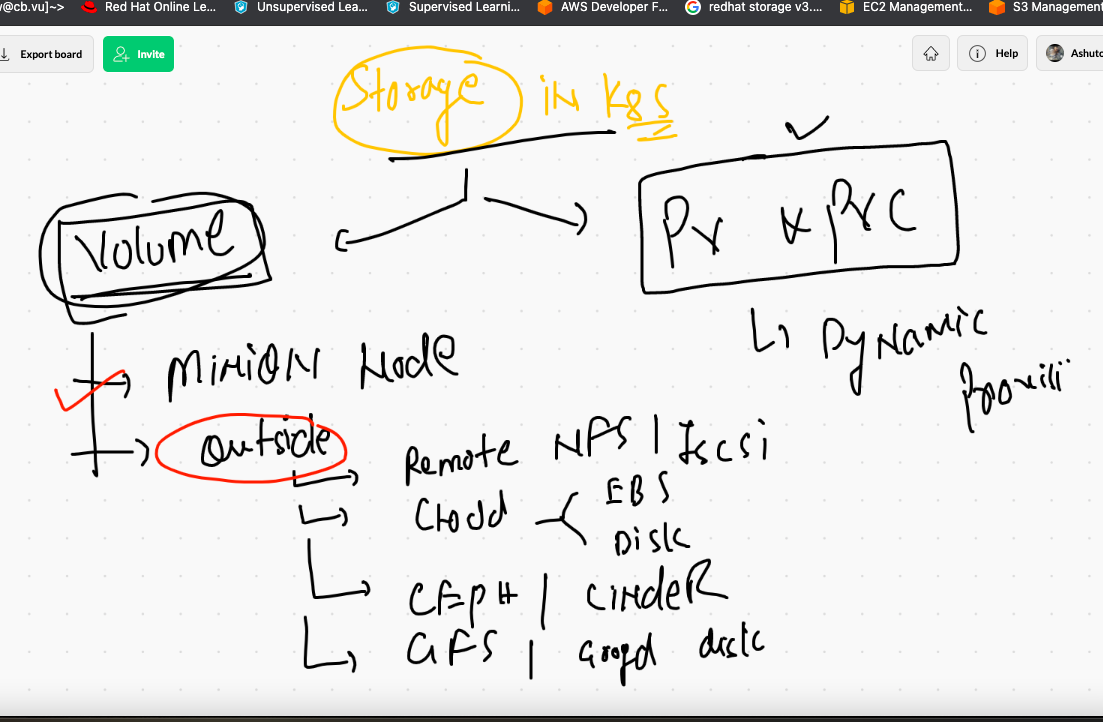 y@cb.vu]~> Red Hat Online Le... Unsupervised Lea... Supervised Learni... AWS Developer F... redhat storage v3.... EC2 Management... S3 Management
Export board Invite Help Ashuto
Storage in K8S
Volume
PV & PVC
Dynamic
Minion Node
Outside
Remote NFS | Iscsi
Cloud
EBS
Disk
CEPH | CindeR
GFS | disk